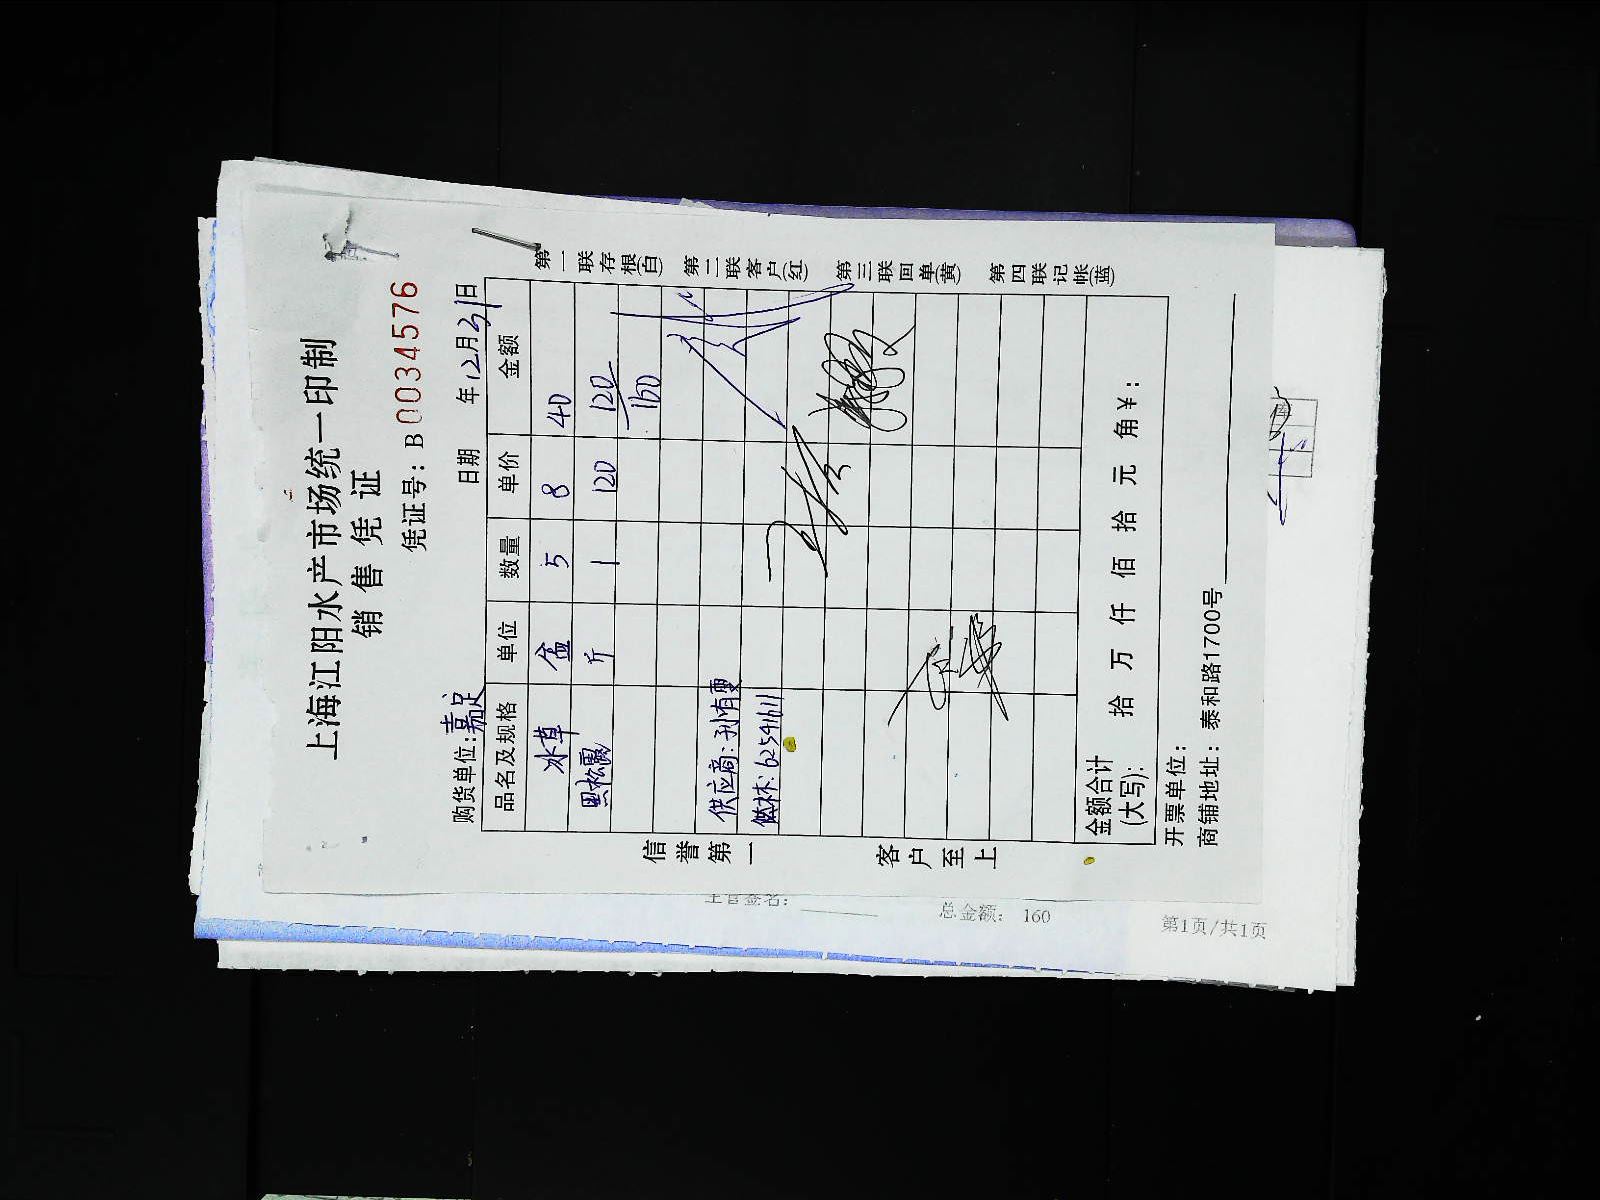 上海江阳水产市场统一印制
销售凭证
凭证号：B 0034576
购货单位：嘉足 日期 年12月31日
品名及规格 单位 数量 单价 金额
冰草 盒 5 8 40
黑松露 斤 1 120 120
160
供应商：
62541611
金额合计
(大写)： 拾 万 仟 佰 拾 元 角 ¥：
开票单位：
商铺地址：泰和路1700号
信誉第一 客户至上
第一联存根(白) 第二联客户(红) 第三联回单(黄) 第四联记帐(蓝)
主管签名：
总金额： 160
第1页/共1页